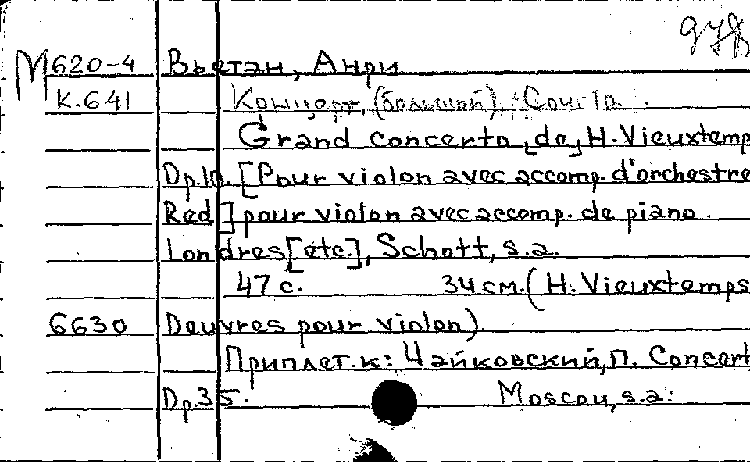 978
М620-4 Вьетан, Анри
К.641 Концерт, (большой).
Grand concerto de, H. Vieuxtemp
Op.10. [Pour violon avec accomp. d'orchestre
Red] pour violon avec accomp. de piano.
Londres [etc.], Schott, s.a.
47 с. 34 см. (H. Vieuxtemps
6630 Oeuvres pour violon)
Приплет. к: Чайковский, П. Concert
Op.35. Moscou, s.a.